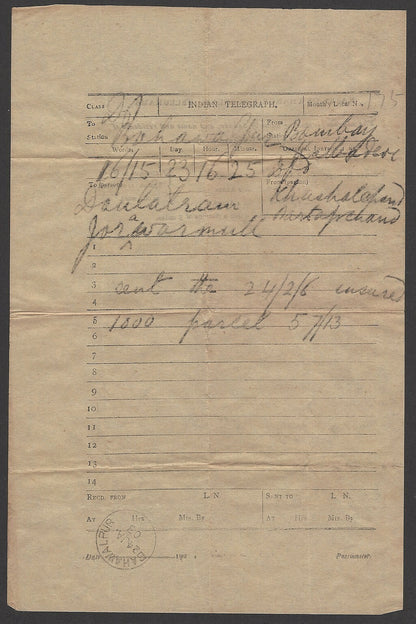 CLASS D INDIAN TELEGRAPH. Month's Local No. 175
To From
Station Bahawalpur Station Bombay
Words. Day. Hour. Minute.
16/15 23 16 25
To (person) From (person)
Daulatram Khushalchand
Jorawarmull Partapchand
1
2
3 sent the 24/2/6 insured
4
5 1000 parcel 57/13
6
7
8
9
10
11
12
13
14
RECD. FROM L. N. SENT TO L. N.
AT Hrs. Mts. By AT Hrs. Mts. By
BAHAWALPUR 24 JA 03
Date 190 Postmaster.